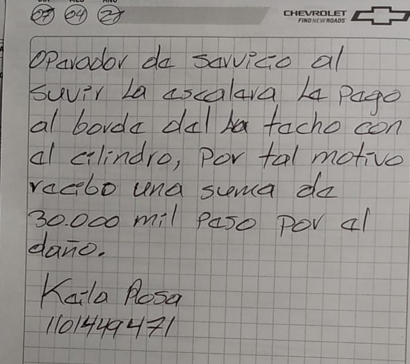 DIA MES AÑO
07 04 27
CHEVROLET
FIND NEW ROADS
Operador de servicio al
suvir la escalera le pago
al borde del techo con
el cilindro, por tal motivo
recibo una suma de
30.000 mil peso por el
daño.
Keila Rosa
1101449471